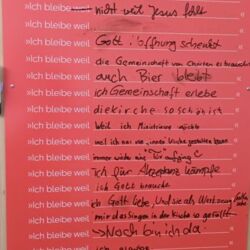 »Ich bleibe weil nicht weil Jesus fehlt
»Ich bleibe weil
»Ich bleibe weil Gott Hoffnung schenkt
»Ich bleibe weil die Gemeinschaft von Christen es braucht
»Ich bleibe weil auch Bier bleibt
»Ich bleibe weil ich Gemeinschaft erlebe
»Ich bleibe weil die kirche so schön ist
»Ich bleibe weil Weil ich
»Ich bleibe weil weil ich nur von innen Kirche gestalten kann
»Ich bleibe weil immer wieder
»Ich bleibe weil ich für Akzeptanz kämpfe
»Ich bleibe weil ich Gott brauche
»Ich bleibe weil ich Gott liebe, und sie als Werkzeug
»Ich bleibe weil mir das Singen in der Kirche so gefällt
»Ich bleibe weil → Noch bin ich da
»Ich bleibe weil ich